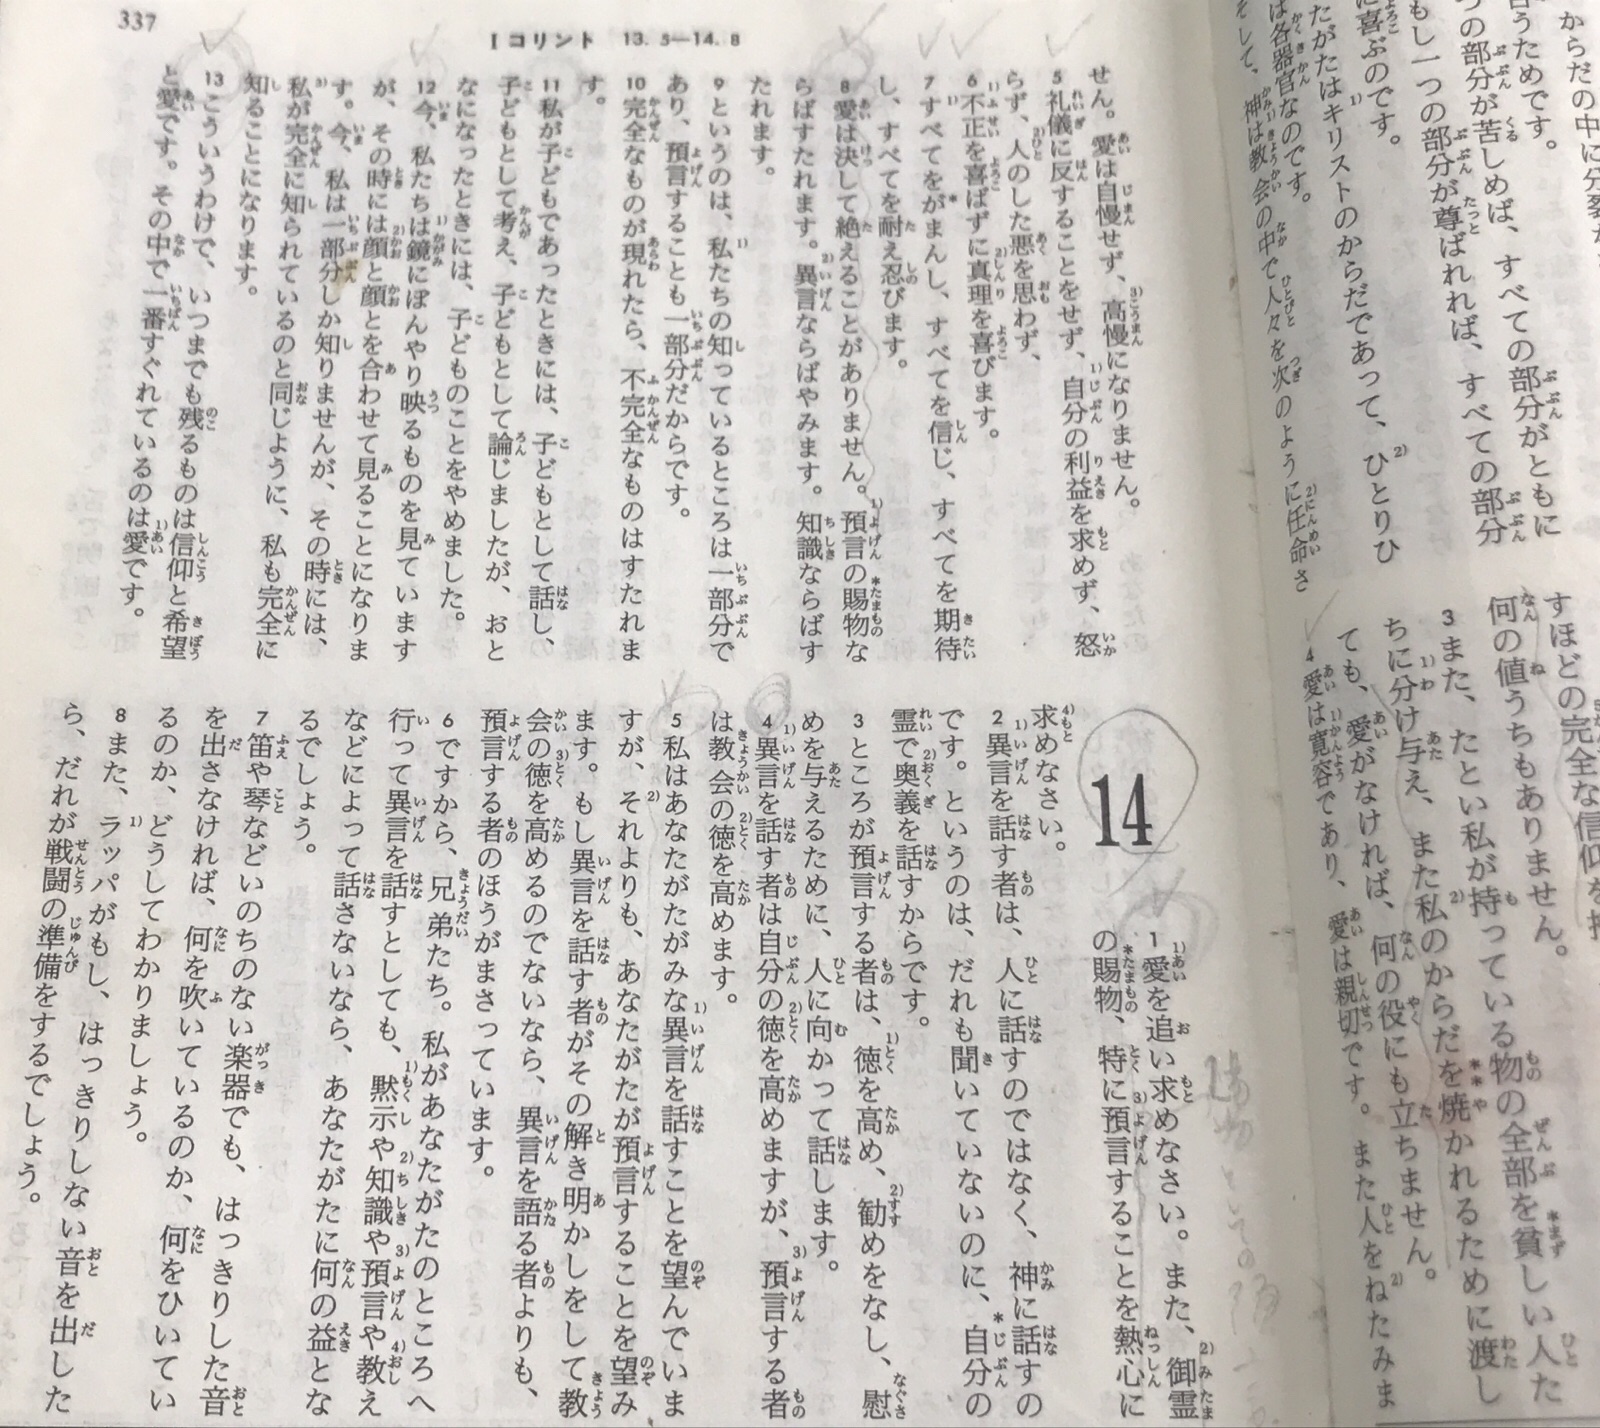 からだの中に分裂が
うためです。
つの部分が苦しめば、すべての部分がともに
もし一つの部分が尊ばれれば、すべての部分
に喜ぶのです。
たがたはキリストのからだであって、ひとりひ
は各器官なのです。
そして、神は教会の中で人々を次のように任命さ
すほどの完全な信仰を持
何の値うちもありません。
3また、たとい私が持っている物の全部を貧しい人た
ちに分け与え、また私のからだを焼かれるために渡し
ても、愛がなければ、何の役にも立ちません。
4愛は寛容であり、愛は親切です。また人をねたみま
337
Iコリント 13. 5—14. 8
せん。愛は自慢せず、高慢になりません。
5礼儀に反することをせず、自分の利益を求めず、怒
らず、人のした悪を思わず、
6不正を喜ばずに真理を喜びます。
7すべてをがまんし、すべてを信じ、すべてを期待
し、すべてを耐え忍びます。
8愛は決して絶えることがありません。預言の賜物な
らばすたれます。異言ならばやみます。知識ならばす
たれます。
9というのは、私たちの知っているところは一部分で
あり、預言することも一部分だからです。
10完全なものが現れたら、不完全なものはすたれま
す。
11私が子どもであったときには、子どもとして話し、
子どもとして考え、子どもとして論じましたが、おと
なになったときには、子どものことをやめました。
12今、私たちは鏡にぼんやり映るものを見ています
が、その時には顔と顔とを合わせて見ることになりま
す。今、私は一部分しか知りませんが、その時には、
私が完全に知られているのと同じように、私も完全に
知ることになります。
13こういうわけで、いつまでも残るものは信仰と希望
と愛です。その中で一番すぐれているのは愛です。
14
1愛を追い求めなさい。また、御霊
の賜物、特に預言することを熱心に
求めなさい。
2異言を話す者は、人に話すのではなく、神に話すの
です。というのは、だれも聞いていないのに、自分の
霊で奥義を話すからです。
3ところが預言する者は、徳を高め、勧めをなし、慰
めを与えるために、人に向かって話します。
4異言を話す者は自分の徳を高めますが、預言する者
は教会の徳を高めます。
5私はあなたがたがみな異言を話すことを望んでいま
すが、それよりも、あなたがたが預言することを望み
ます。もし異言を話す者がその解き明かしをして教
会の徳を高めるのでないなら、異言を語る者よりも、
預言する者のほうがまさっています。
6ですから、兄弟たち。私があなたがたのところへ
行って異言を話すとしても、黙示や知識や預言や教え
などによって話さないなら、あなたがたに何の益とな
るでしょう。
7笛や琴などいのちのない楽器でも、はっきりした音
を出さなければ、何を吹いているのか、何をひいてい
るのか、どうしてわかりましょう。
8また、ラッパがもし、はっきりしない音を出した
ら、だれが戦闘の準備をするでしょう。